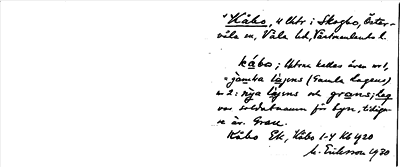 "Kåbo, 4 Utr i Skogbo, Öster-
våla sn, Våla hd, Västmanlands l.
kåbo; Utrar kallas även nr 1,
= jamka lajens (Gamla Lagens)
nr 2: nija lajens och grans; leg
var soldatnamn för byn, tidiga-
re är. Gran.
Kåbo Ek, Kåbo 1-4 Kb 1920
M. Eriksson 1930